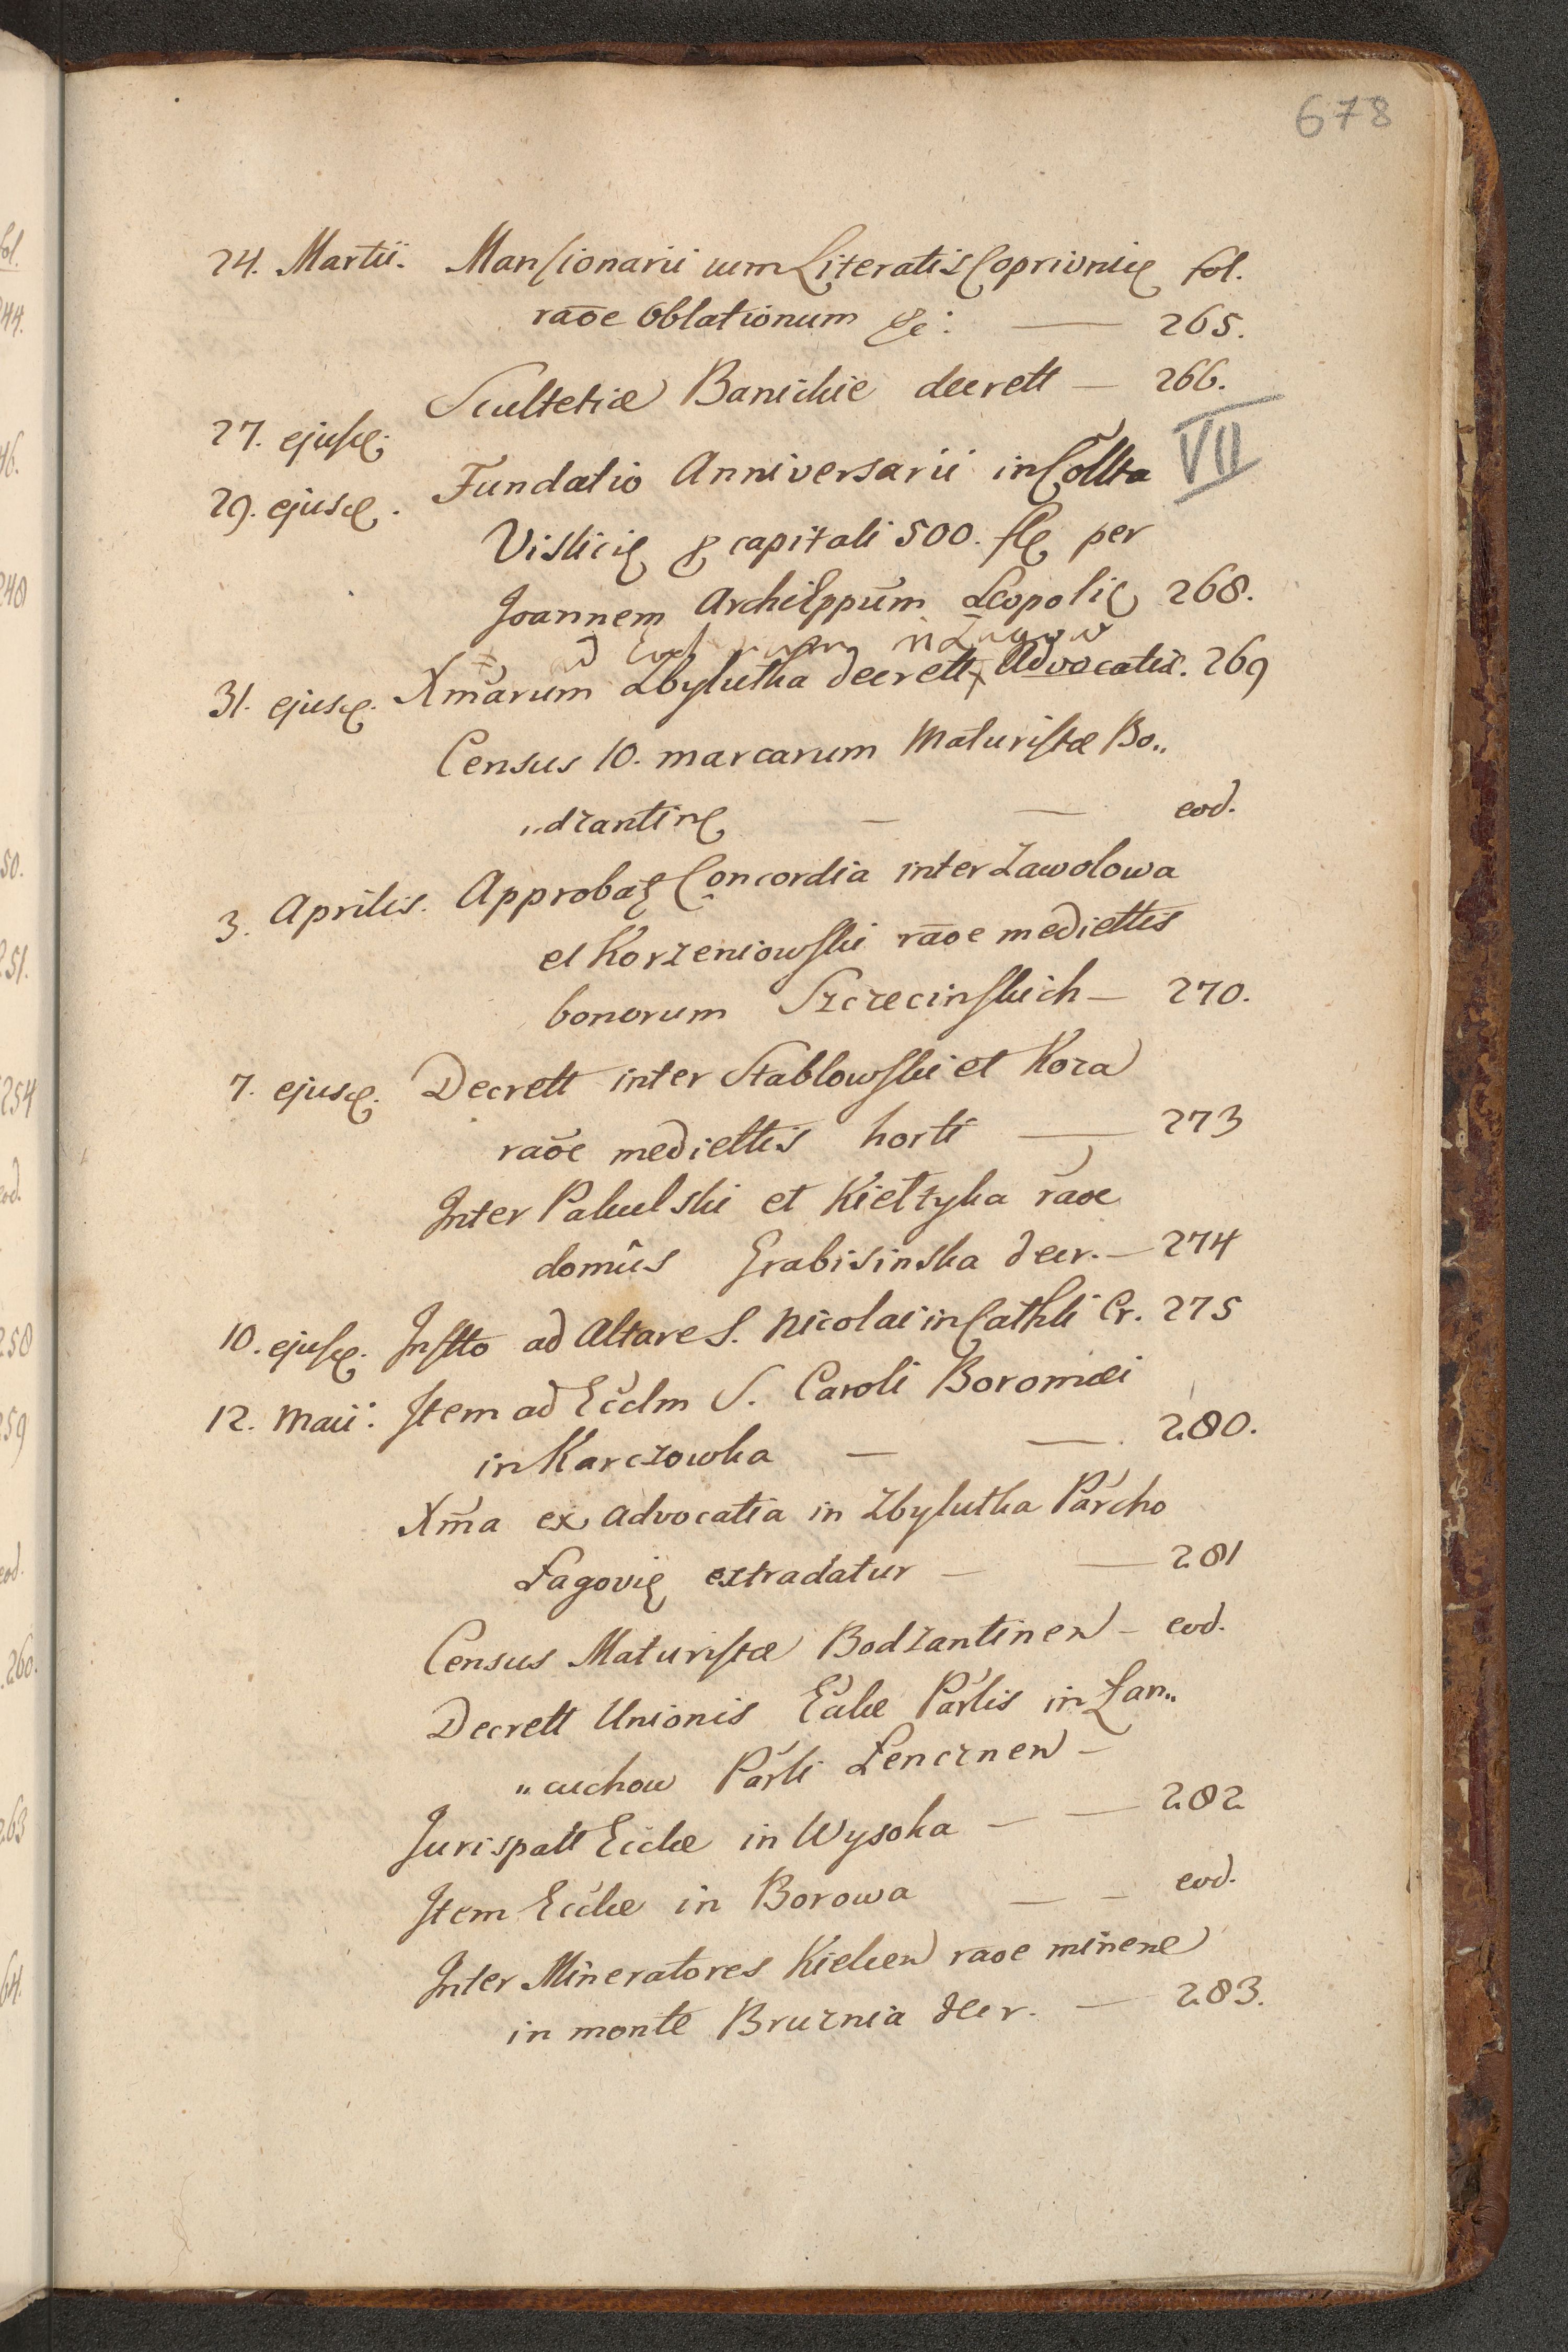 678
24. Martii. Mansionarii cum Literatis Coprivnicę fol.
rāoe Oblationum &c: — 265.
Scultetiæ Banickie decrett — 266.
27. ejusd.
29. ejusd. Fundatio Anniversarii in Collta VII
Vislicię & capitali 500. fl. per
Joannem Archieppum Leopolię 268.
ad Eccl in Łagow
31. ejusd. Xmarum Zbylutka decrett, Advocatiæ. 269
Census 10. marcarum Maturistæ Bo„
„dzantinę — — eod.
3. Aprilis. Approbaę Concordia inter Zawolowa
et Korzeniowski rāoe medietttis
bonorum Szczecinskich — 270.
7. ejusd. Decrett inter Stablowski et Koza
rāoe mediettis horti — 273
Inter Pakulski et Kieltyka rāoe
domûs Grabisinska decr. — 274
10. ejusd. Instto ad Altare S. Nicolai in Cathli Cr. 275
12. Maii: Item ad Ecclm S. Caroli Boromæi
in Karczowka — — 280.
Xma ex Advocatia in Zbylutka Parcho
Łagovię extradatur — — 281
Census Maturistæ Bodzantinen — eod.
Decrett Unionis Eccle Parlis in Łan„
„cuchow Parli Lencznen —
Jurispatt Eccle in Wysoka — — 282
Item Eccle in Borowa — — eod.
Inter Mineratores Kielcen raoe mineræ
in monte Bruznia decr. — 283.